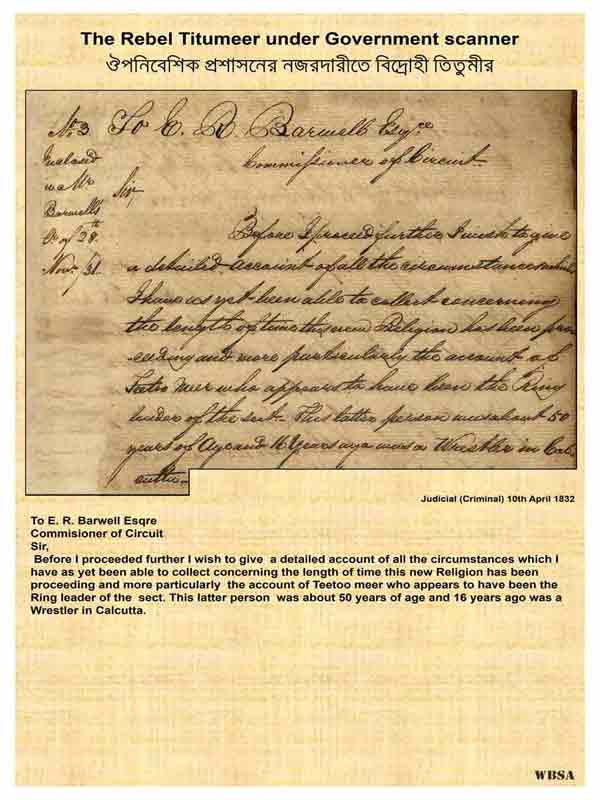 The Rebel Titumeer under Government scanner
ঔপনিবেশিক প্রশাসনের নজরদারীতে বিদ্রোহী তিতুমীর
No. 3 To E. R. Barwell Esqre
Commissioner of Circuit
Sir,
Barwell's
of 28th
Novr/31
Before I proceed further I wish to give
a detailed account of all the circumstances which
I have as yet been able to collect concerning
the length of time this new Religion has been pro
ceeding and more particularly the account of
Teetoo Meer who appears to have been the Ring
leader of the sect. This latter person was about 50
years of Age and 16 Years ago was a Wrestler in Cal
cutta.
Judicial (Criminal) 10th April 1832
To E. R. Barwell Esqre
Commisioner of Circuit
Sir,
Before I proceeded further I wish to give a detailed account of all the circumstances which I
have as yet been able to collect concerning the length of time this new Religion has been
proceeding and more particularly the account of Teetoo meer who appears to have been the
Ring leader of the sect. This latter person was about 50 years of age and 16 years ago was a
Wrestler in Calcutta.
WBSA